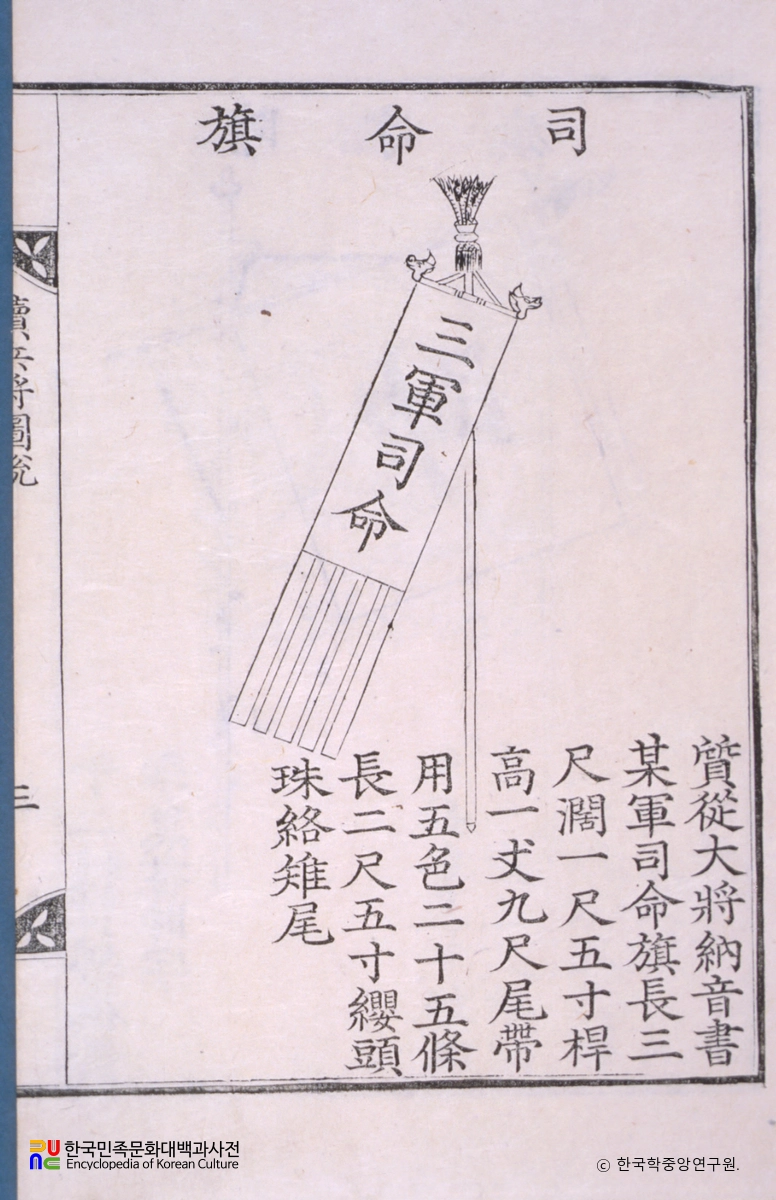 司命旗
三軍司命
質從大將納音書
某軍司命旗長三
尺濶一尺五寸桿
高一丈九尺尾帶
用五色二十五條
長二尺五寸纓頭
珠絡雉尾
兵將圖說
三
한국민족문화대백과사전
Encyclopedia of Korean Culture
ⓒ 한국학중앙연구원.